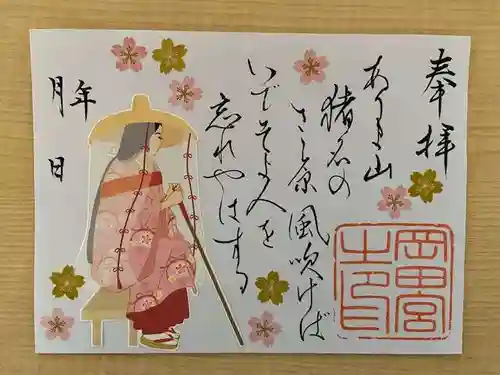 奉拝
あり間山
猪名の
さゝ原
風吹けば
いでそよ人を
忘れやはする
年
月
日
岡田宮
之印